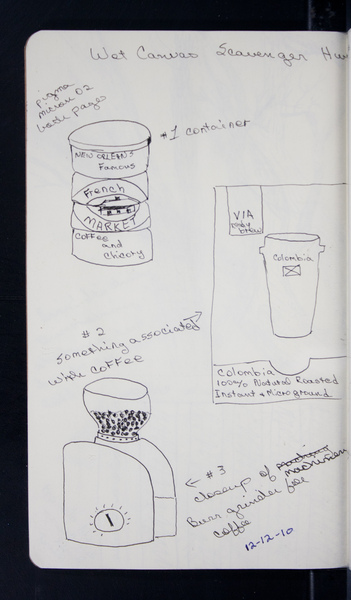 Wet Canvas Scavenger Hu
pigma
micron 02
#1 container
NEW ORLEAN'S
Famous
French
MARKET
COFFEE
and
Chicory
VIA
ready
brew
Colombia
Colombia
100% Natural Roasted
Instant & Microground
#2
something associated
with coffee
#3
closeup of machinery
Burr grinder for
coffee
12-12-10